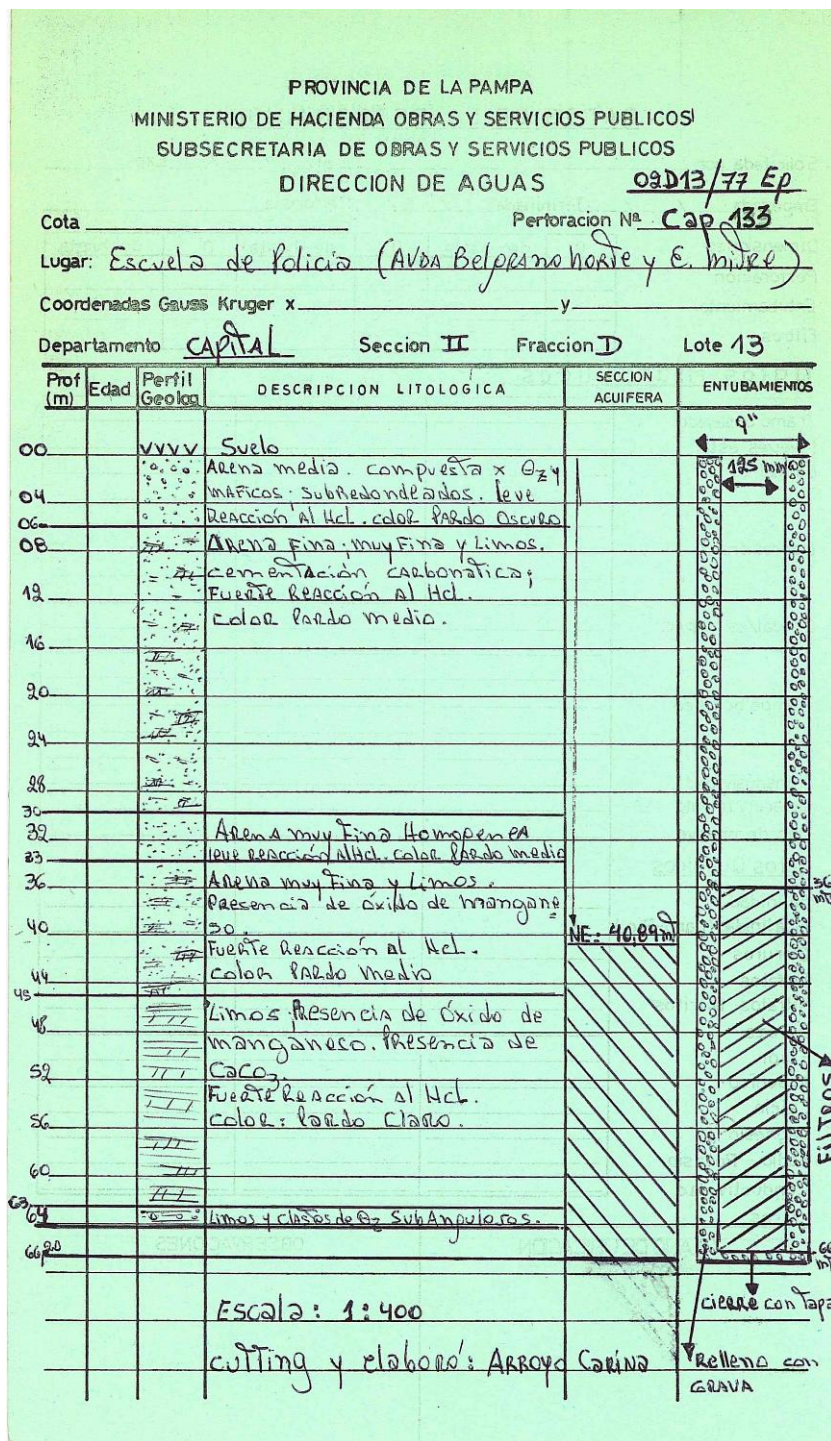 PROVINCIA DE LA PAMPA
MINISTERIO DE HACIENDA OBRAS Y SERVICIOS PUBLICOS
SUBSECRETARIA DE OBRAS Y SERVICIOS PUBLICOS
DIRECCION DE AGUAS 02D13/77 Ep
Cota Perforacion Nª Cap 133
Lugar: Escuela de Policia (AVDA Belgrano norte y E. mitre)
Coordenadas Gauss Kruger x y
Departamento CAPITAL Seccion II Fraccion D Lote 13
Prof (m) Edad Perfil Geolog DESCRIPCION LITOLOGICA SECCION ACUIFERA ENTUBAMIENTOS
9"
00 VVVV Suelo
Arena media. compuesta x Qz y 125 mm
04 MAFICOS; SubRedondeados. leve
06 Reacción Al Hcl. color PARDO OSCURO
08 ARENA Fina; muy Fina y Limos.
cementación CARBONATICA;
12 Fuerte Reacción Al Hcl.
color PARDO medio.
16
20
24
28
30
32 ARENA muy Fina Homogenea
33 leve reacción Al Hcl. color PARDO medio
36 ARENA muy Fina y Limos. 36
Presencia de óxido de mangane
40 so. NE: 40,89 m
Fuerte Reacción al Hcl.
44 color PARDO medio
45
48 Limos Presencia de Óxido de
manganeso. Presencia de
52 CaCO3.
Fuerte Reacción Al Hcl.
56 color: Pardo Claro.
FILTROS
60
63
64 Limos y clastos de Qz SubAngulosos.
66,20 66
Escala: 1:400 cierre con Tapa
cutting y elaboró: ARROYO CARINA Relleno con
GRAVA